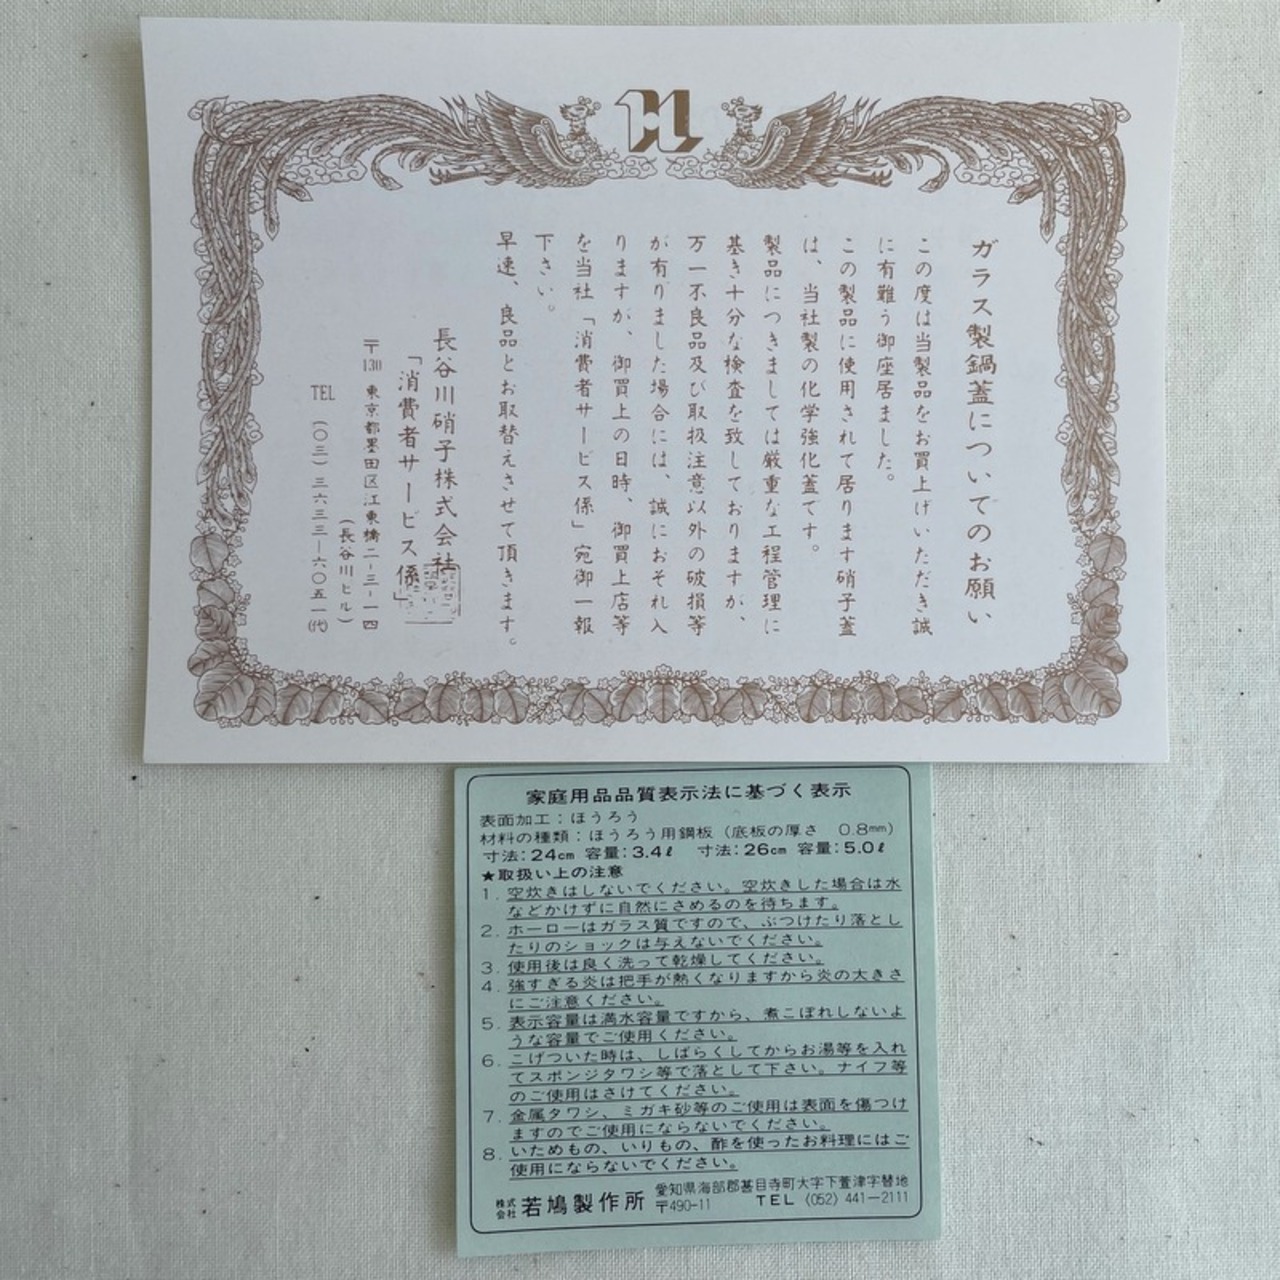 ガラス製鍋蓋についてのお願い
この度は当製品をお買上げいただき誠
に有難う御座居ました。
この製品に使用されて居ります硝子蓋
は、当社製の化学強化蓋です。
製品につきましては厳重な工程管理に
基き十分な検査を致しておりますが、
万一不良品及び取扱注意以外の破損等
が有りました場合には、誠におそれ入
りますが、御買上の日時、御買上店等
を当社「消費者サービス係」宛御一報
下さい。
早速、良品とお取替えさせて頂きます。
長谷川硝子株式会社
「消費者サービス係」
〒130 東京都墨田区江東橋二-三-一四
(長谷川ビル)
TEL (〇三)三六三三-六〇五一(代)
家庭用品品質表示法に基づく表示
表面加工:ほうろう
材料の種類:ほうろう用鋼板(底板の厚さ 0.8mm)
寸法:24cm 容量:3.4ℓ 寸法:26cm 容量:5.0ℓ
★取扱い上の注意
1. 空炊きはしないでください。空炊きした場合は水
などかけずに自然にさめるのを待ちます。
2. ホーローはガラス質ですので、ぶつけたり落とし
たりのショックは与えないでください。
3. 使用後は良く洗って乾燥してください。
4. 強すぎる炎は把手が熱くなりますから炎の大きさ
にご注意ください。
5. 表示容量は満水容量ですから、煮こぼれしないよ
うな容量でご使用ください。
6. こげついた時は、しばらくしてからお湯等を入れ
てスポンジタワシ等で落として下さい。ナイフ等
のご使用はさけてください。
7. 金属タワシ、ミガキ砂等のご使用は表面を傷つけ
ますのでご使用にならないでください。
8. いためもの、いりもの、酢を使ったお料理にはご
使用にならないでください。
株式会社 若鳩製作所
愛知県海部郡甚目寺町大字下萱津字替地
〒490-11 TEL (052) 441-2111